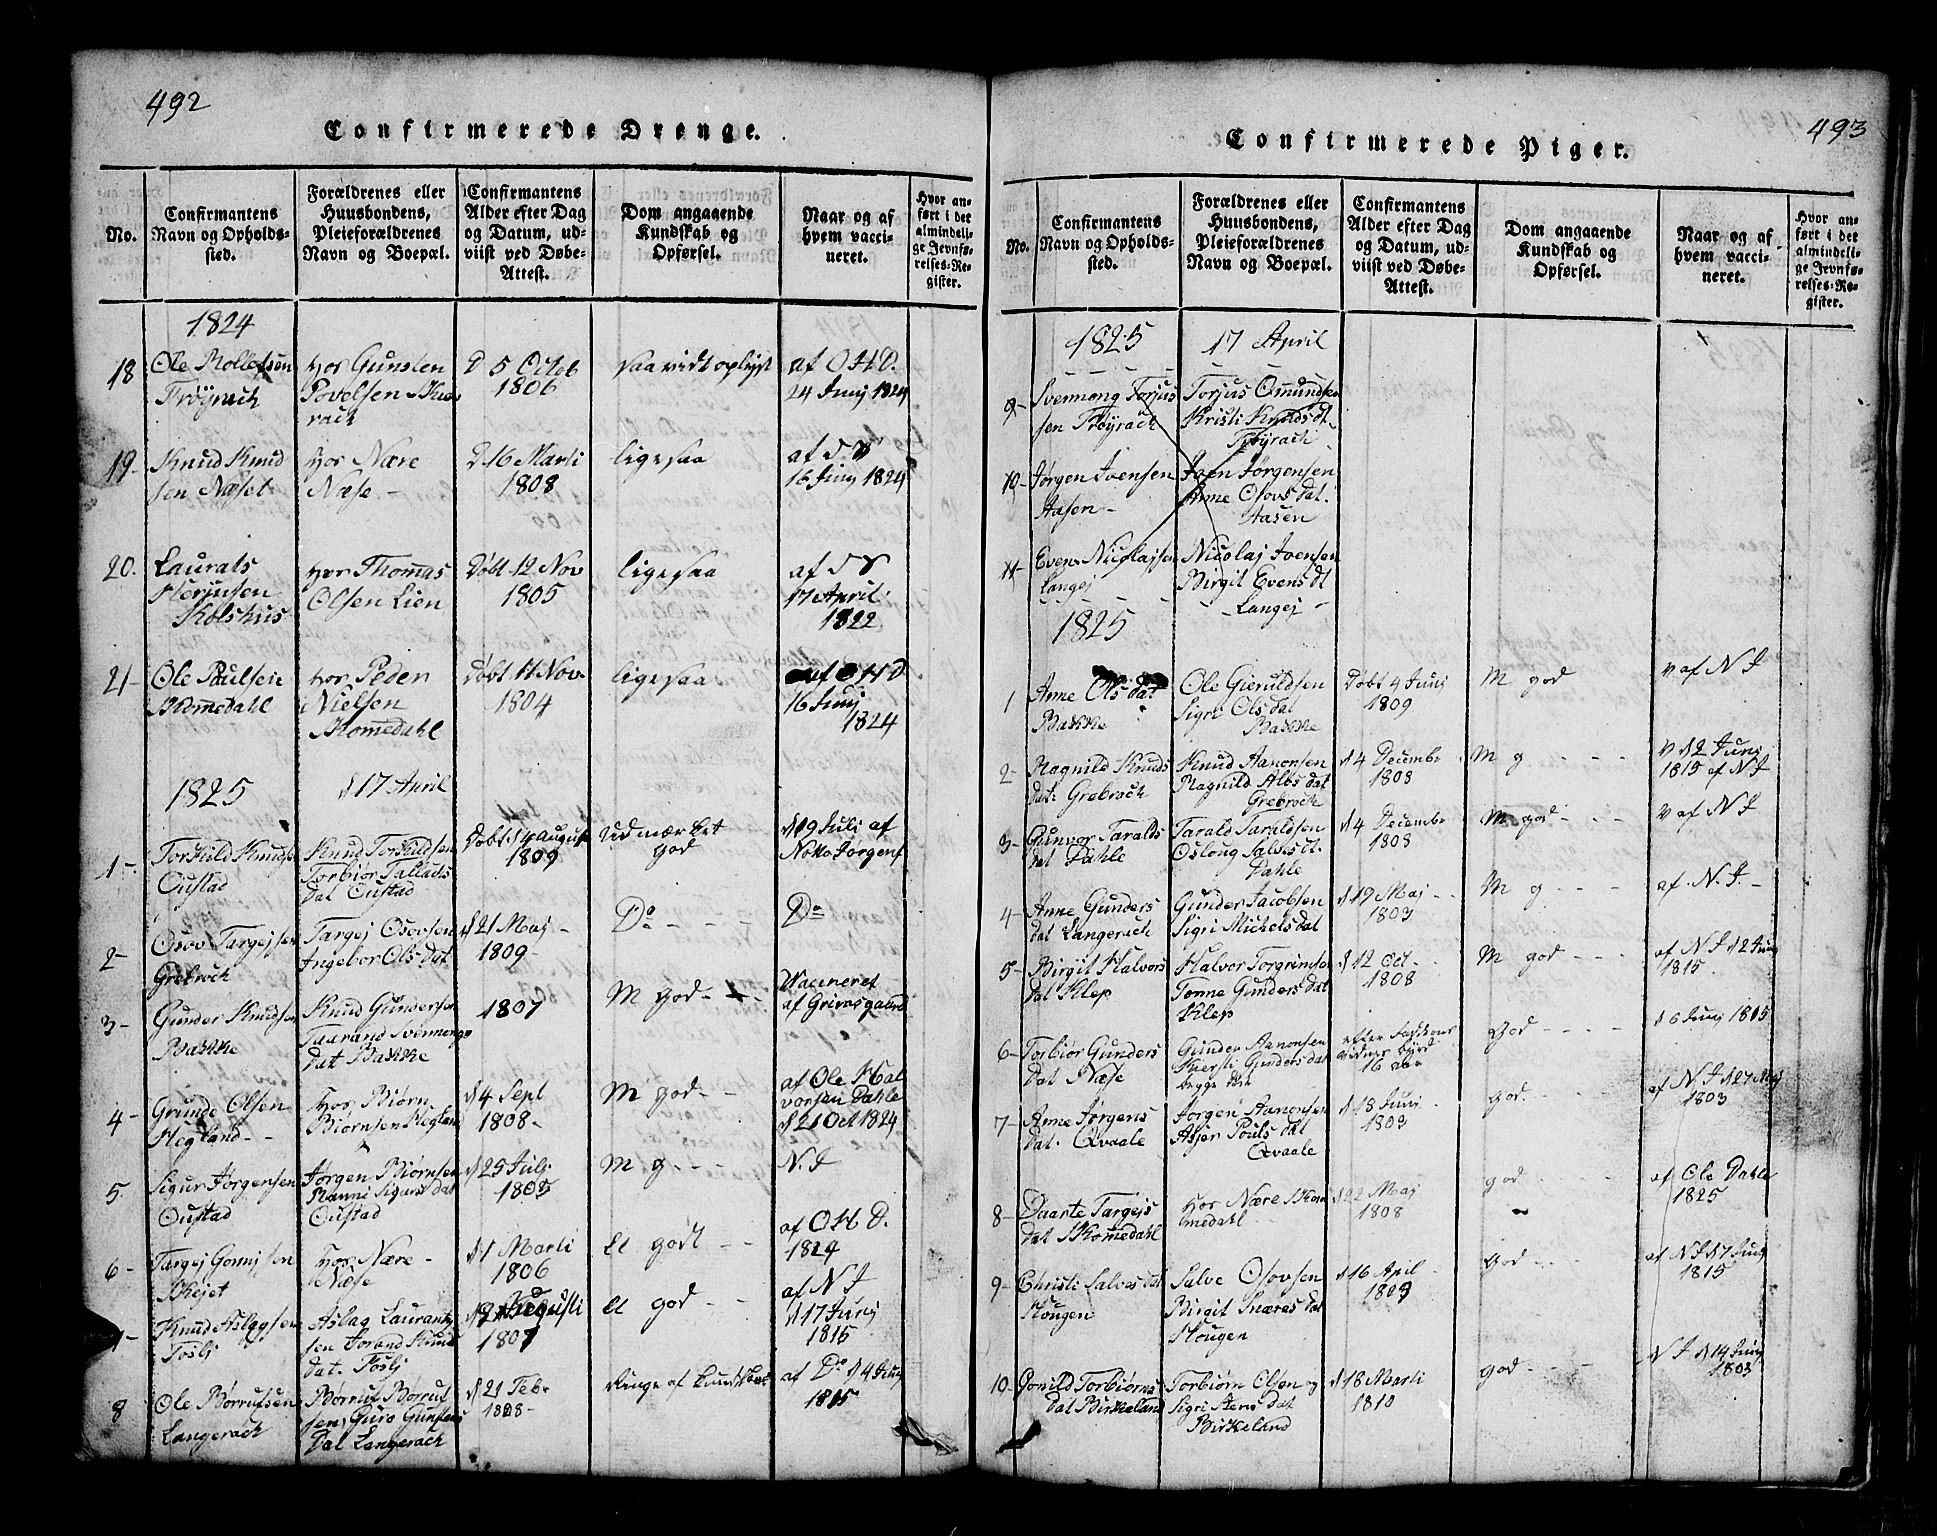 492
Confirmerede Drenge.
No.
Confirmantens
Navn og Opholds-
sted.
Forældrenes eller
Huusbondens,
Pleieforældrenes
Navn og Boepæl.
Confirmantens
Alder efter Dag
og Datum, ud-
viist ved Døbe-
Attest.
Dom angaaende
Kundskab og
Opførsel.
Naar og af
hvem vacci-
neret.
Hvor an-
ført i det
almindeli-
ge Jevnfø-
relses-Re-
gister.
1824
18
Ole Rollefsen
Trøyrach
Hos Gunsten
Povelsen
D 5 Octob
1806
saavidt oplyst
af O H D.
24 Junj 1824
19-
Knud Knud
sen Næset
Hos Nære
Næse -
D 16 Marti
1808
ligesaa
af
16 Junj 1824
20.
Laurats
Kolshus
Hos Thomas
Olsen Lien
Døbt 12 Nov
1805
ligesaa
af
17 April
1822
21-
Ole Paulsen
Komedahl
Hos Peder
Nielsen
Komedahl
Døbt 11 Nov.
1804
ligesaa
af O H D
16 Junj
1824
1825
d 17 April
1-
Torkild Knudsen
Oustad
Knud Torkildsen
Torbior Tallads
dat Oustad
Døbt d 4 August
1809
Udmærket
god
d 19 Juli af
Jørgens
2-
Osov Targejsen
Grebroch
Targej Osovsen
Ingebor Ols dat
d 21 Maj -
1809-
Do - - -
Do
3-
Gunder Knudsen
Bakke
Knud Gundersen
Taarand Svennungs
dat Bakke
1807
M god - -
Vacineret
af Grimsgaard
4-
Grunde Olsen
Hegland - -
Hos Biørn
Biørnsen Hegland
d 4 Sept
1808-
M god - -
af Ole Hal
vorsen Dahle
d 21 Oct 1824
5.
Sigur Jørgensen
Oustad
Jørgen Biørnsen
Ranni Sigurs dat
Oustad
d 25 Julj
1805
M g. - -
N. J
6-
Targej Gonnjsen
Hos Nære -
Næse
d 1 Marti
1806
et godt - -
af O H D.
1824
7-
Knud Aslagsen
Toslj
Aslag Laurants
sen Jorand Knuds
dat. Toslj
Augusti
1807
et god - -
af N J
d 17 Junj
1815
8
Ole Børrufsen
Langerach
Børruf Børruf
sen, Guro Gunsteens
Dat Langerach
d 21 Febr
1808-
Ringe af Kundskab
af Do d 4 Junj
1815
493
Confirmerede Piger.
No.
Confirmantens
Navn og Opholds-
sted.
Forældrenes eller
Huusbondens,
Pleieforældrenes
Navn og Boepæl.
Confirmantens
Alder efter Dag
og Datum, ud-
viist ved Døbe-
Attest.
Dom angaaende
Kundskab og
Opførsel.
Naar og af
hvem vacci-
neret.
Hvor an-
ført i det
almindeli-
ge Jevnfø-
relses-Re-
gister.
1825
17 April
9-
Svennong Torjus
sen Trøyrach
Torjus Omundsen
Kristi Knuds dt
Trøyrach
10-
Jørgen Ivensen
Aasen -
Iven Jørgensen
Anne Osovs dat.
Aasen
11-
Even Nicolajsen
Langej
Nicolaj Ivensen
Birgit Evens dt
Langej -
1825
1
Anne Ols dat
Bakke
Ole Gieruldsen
Sigri Ols dat
Bakke
Døbt 4 Junj
1809
M god
v af N J
2-
Ragnild Knuds
dat. Grebroch
Knud Aanonsen
Ragnild Albs dat
Grebroch
d 4 Decembr
1808
M g. - - -
v d 2 Junj
1815 af N J
3-
Gunvor Taralds
dat Dahle
Tarald Taraldsen
Osloug Salves dt.
Dahle
d 4 Decembr
1808
M god - - -
v af N J
4-
Anne Gunders
dat Langerach
Gunder Jacobsen
Sigri Michels dat
d 19 Maj - -
1803
M g - - -
af N. J. -
5-
Birgit Halvors
dat Klep
Halvor Torgrimsen
Tonne Gunders dat
Klep
d 12 Oct -
1808
M god - - -
af N J d 2 Junj
1815
6-
Torbiør Gunders
Dat Næse
Gunder Aanonsen
Kiersti Gunders dat
16 aar
god - - - -
d 6 Junj 1815
7-
Anne Jørgens
dat. Qvaale
Jørgen Aanonsen
Asjer Pouls dat
Qvaale
d 18 Junj
1803
god. - - -
af N J d 27 Maj
1803
8-
Daarte Targejs
dat Komedahl
Hos Nære Kom
medahl
d 22 Maj
1808
god - - - -
af Ole Dahle
1825
9-
Christi Salves dat
Hougen
Salve Osovsen
Birgit Snæres dat
Hougen
d 16 April -
1809
god - - -
af N J d 7 Junj
1815
10-
Gonild Torbiørns
dat Birkeland
Torbiørn Olsen og
Sigri Stens dat
Birkeland
d 18 Marti
1810
god - - -
N J d 14 Junj
1803